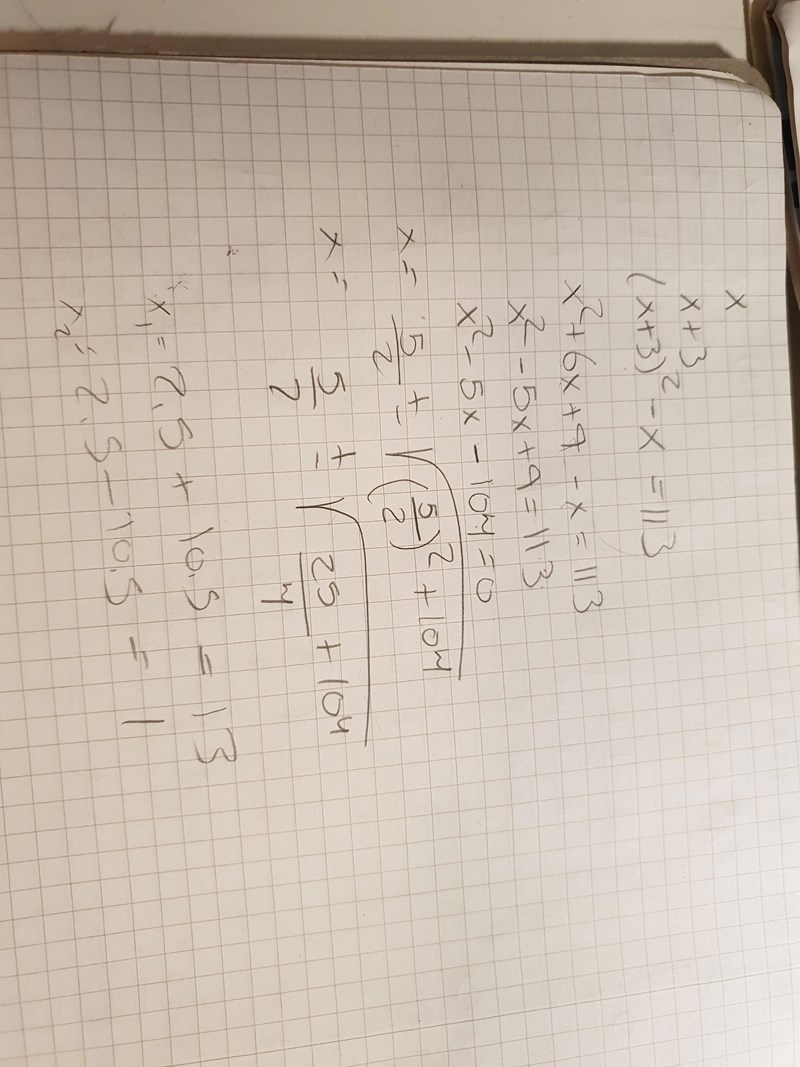 x
x+3
(x+3)² - x = 113
x² + 6x + 9 - x = 113
x² - 5x + 9 = 113
x² - 5x - 104 = 0
x = 5/2 ± √((5/2)² + 104)
x = 5/2 ± √(25/4 + 104)
x₁ = 2.5 + 10.5 = 13
x₂ = 2.5 - 10.5 = 1